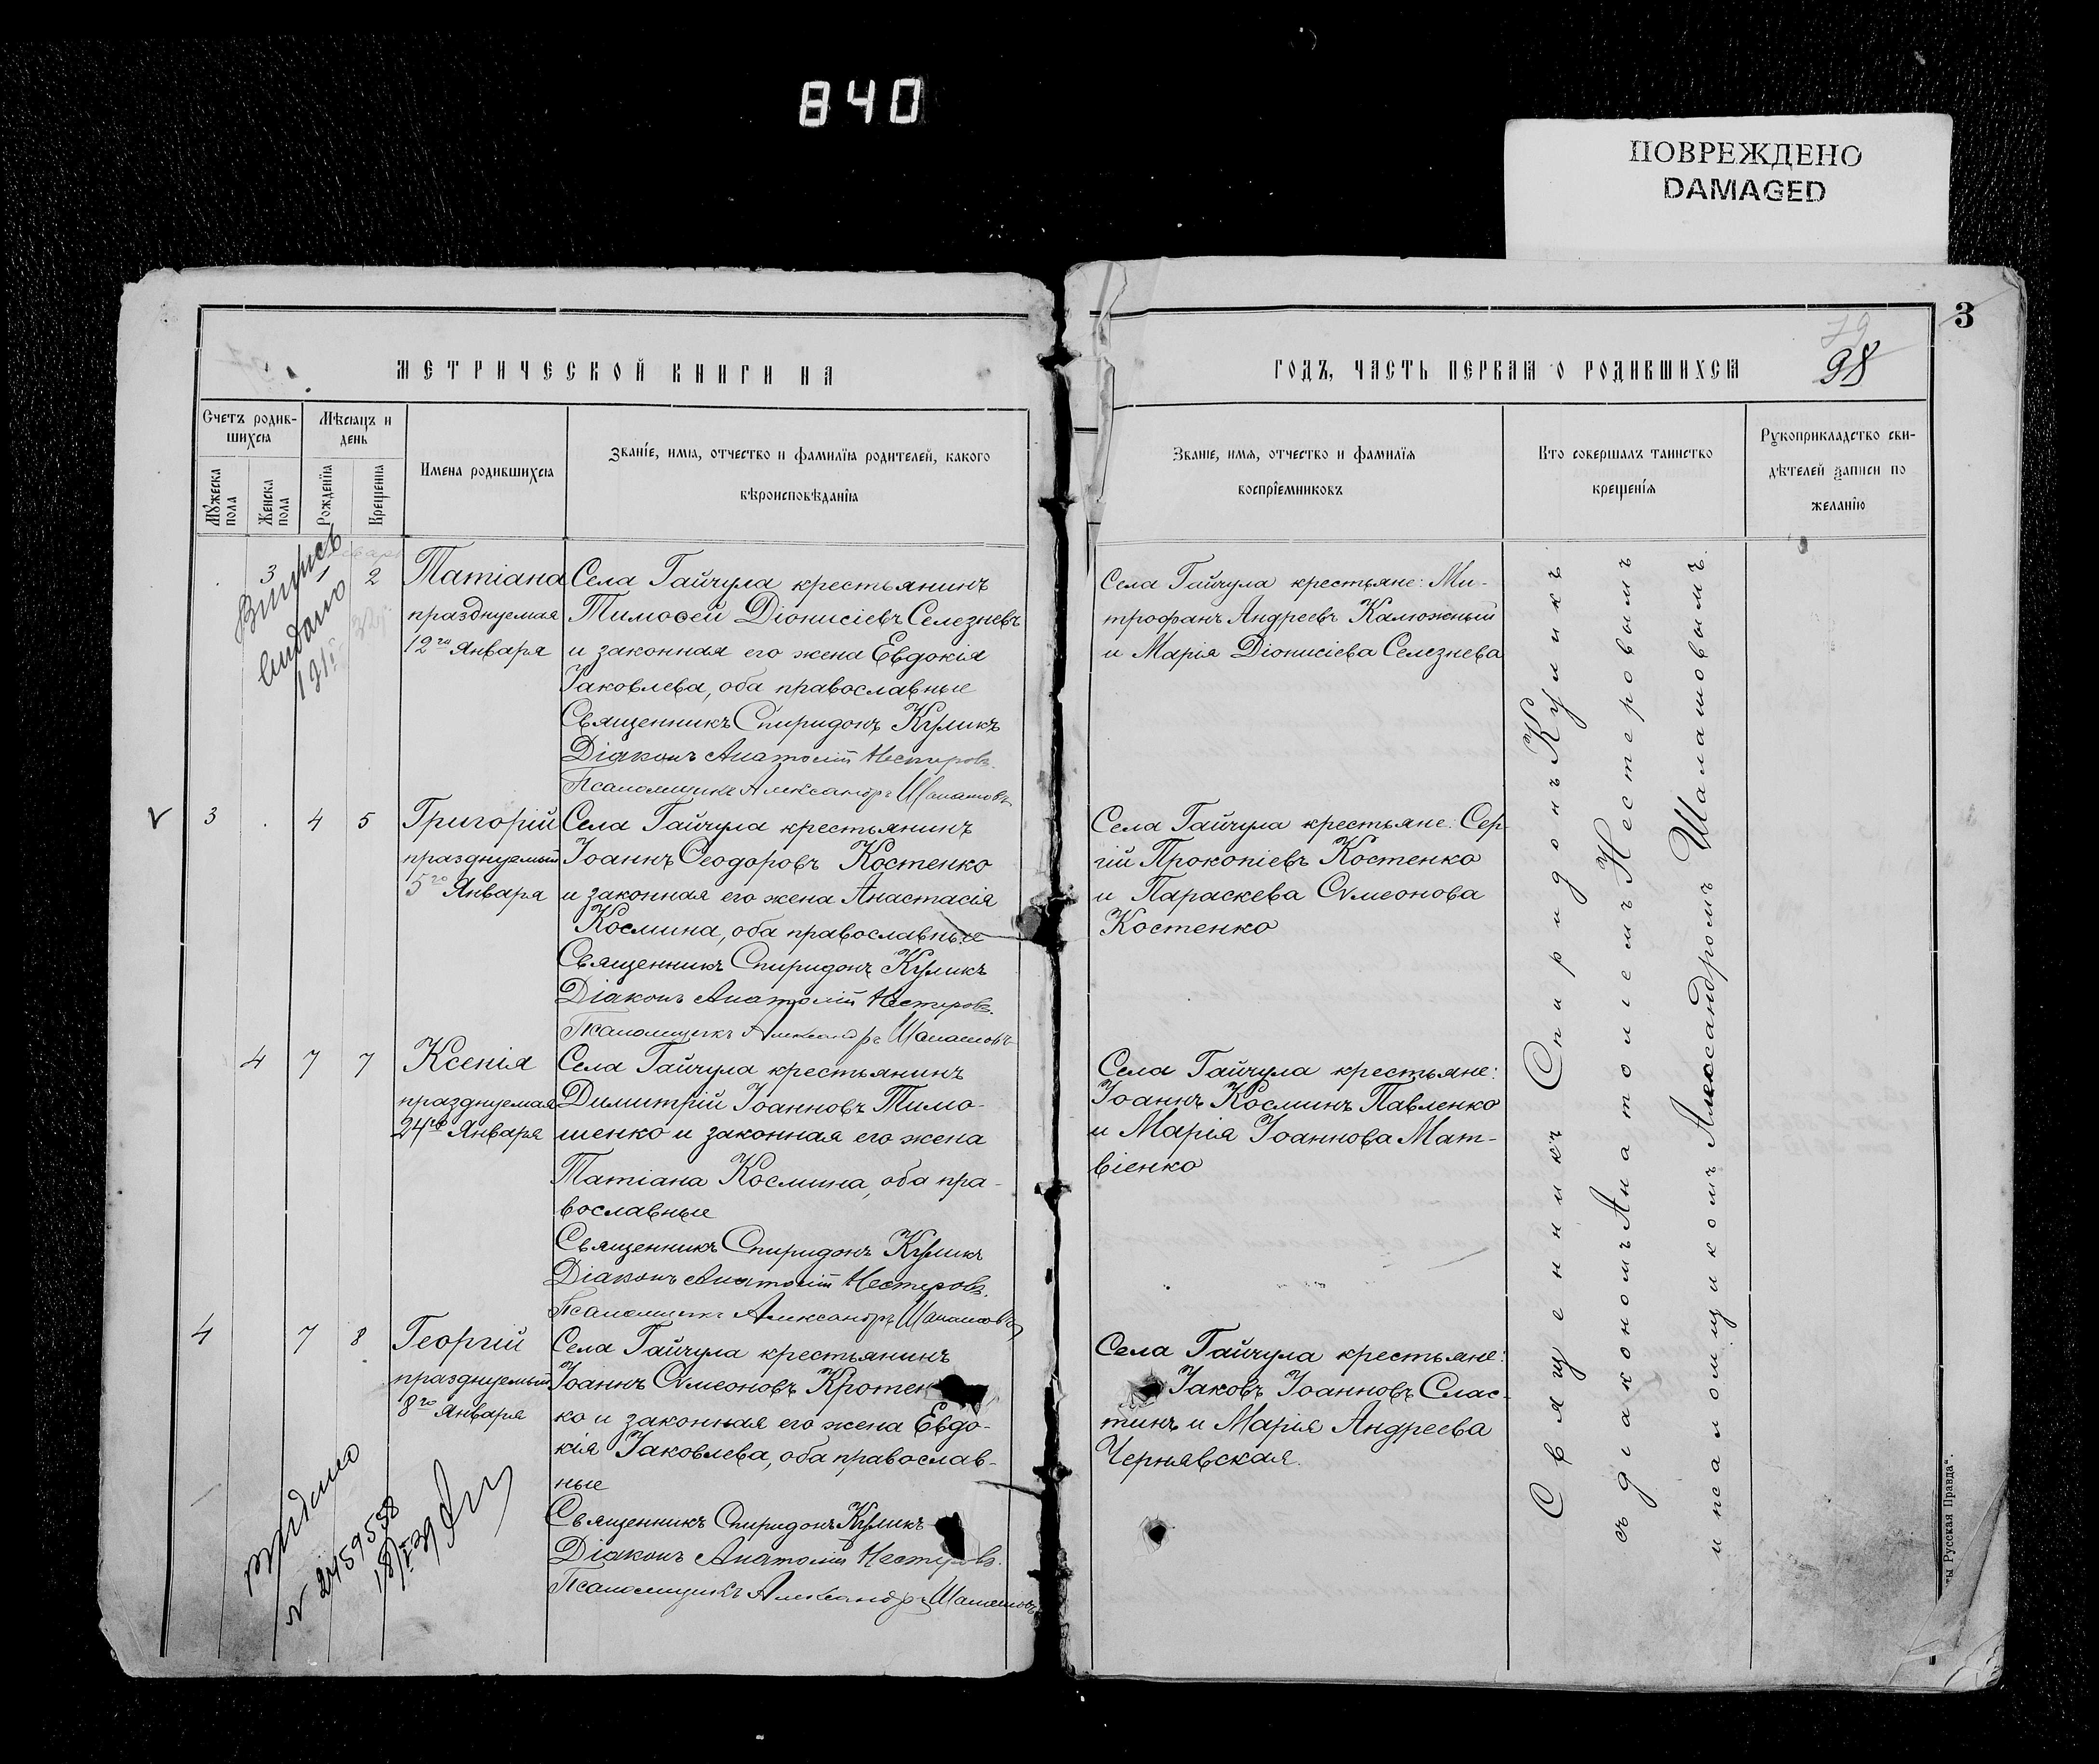 840
ПОВРЕЖДЕНО
DAMAGED
МЕТРИЧЕСКОЙ КНИГИ НА
Счетъ родив-
шихся
Мѣсяцъ и
день
Мужеска
пола
Женска
пола
Рожденїя
Крещенїя
Имена родившихся
Званїе, имя, отчество и фамилїя родителей, какого
вѣроисповѣданїя
3
1
2
Татіана
празднуемая
12го Января
Села Гайчула крестьянинъ
Тимоѳей Діонисіевъ Селезневъ
и законная его жена Евдокія
Іаковлева, оба православные
Священникъ Спиридонъ Куликъ
Діаконъ Анатолій Нестеровъ.
Псаломщикъ Александръ Шаламовъ
3
4
5
Григорій
празднуемый
5го Января
Села Гайчула крестьянинъ
Іоаннъ Ѳеодоровъ Костенко
и законная его жена Анастасія
Космина, оба православные
Священникъ Спиридонъ Куликъ
Діаконъ Анатолій Нестеровъ.
Псаломщикъ Александръ Шаламовъ
4
7
7
Ксенія
празднуемая
24го Января
Села Гайчула крестьянинъ
Димитрій Іоанновъ Тимо-
шенко и законная его жена
Татіана Космина, оба пра-
вославные
Священникъ Спиридонъ Куликъ
Діаконъ Анатолій Нестеровъ.
Псаломщикъ Александръ Шаламовъ
4
7
8
Георгій
празднуемый
8го Января
Села Гайчула крестьянинъ
Іоаннъ Сѵмеоновъ Кротен
ко и законная его жена Евдо-
кія Іаковлева, оба православ-
ные
Священникъ Спиридонъ Куликъ
Діаконъ Анатолій Нестеровъ.
Псаломщикъ Александръ Шаламовъ
Выпись
выдано
выдано
№ 2459598
3
98
ГОДЪ, ЧАСТЬ ПЕРВАЯ О РОДИВШИХСЯ
Званїе, имя, отчество и фамилїя
воспрїемниковъ
Кто совершалъ таинство
крещенїя
Рукоприкладство сви-
дѣтелей записи по
желанїю
Села Гайчула крестьяне: Ми-
трофанъ Андреевъ Калюжный
и Марія Діонисіева Селезнева
Села Гайчула крестьяне: Сер-
гій Прокопіевъ Костенко
и Параскева Сѵмеонова
Костенко
Села Гайчула крестьяне:
Іоаннъ Косминъ Павленко
и Марія Іоаннова Мат-
віенко
Села Гайчула крестьяне:
Іаковъ Іоанновъ Слас-
тинъ и Марія Андреева
Чернявская.
Священникъ Спиридонъ Куликъ
съ діакономъ Анатоліемъ Нестеровымъ
и псаломщикомъ Александромъ Шаламовымъ.
Русская Правда".